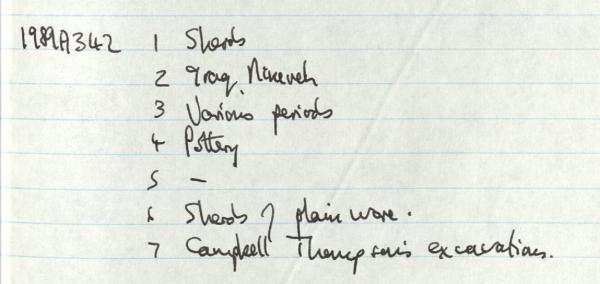 1989A342 1 Sherds
2 Iraq, Nineveh
3 Various periods
4 Pottery
5 -
6 Sherds of plain ware.
7 Campbell Thompson's excavations.